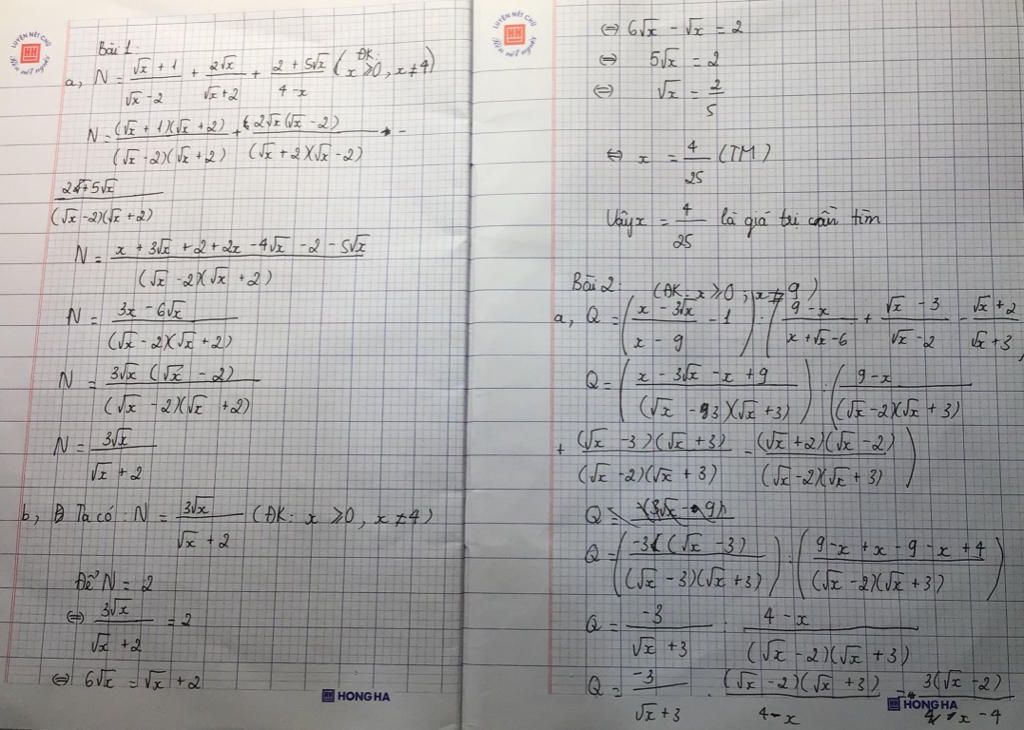 LUYỆN NÉT CHỮ
Bài 1:
a, N = (√x + 1)/(√x - 2) + 2√x/(√x + 2) + (2 + 5√x)/(4 - x) (ĐK: x ≥ 0, x ≠ 4)
N = (√x + 1)(√x + 2)/(√x - 2)(√x + 2) + 2√x(√x - 2)/(√x + 2)(√x - 2) -
(2 + 5√x)/(√x - 2)(√x + 2)
N = (x + 3√x + 2 + 2x - 4√x - 2 - 5√x)/(√x - 2)(√x + 2)
N = (3x - 6√x)/(√x - 2)(√x + 2)
N = 3√x(√x - 2)/(√x - 2)(√x + 2)
N = 3√x/(√x + 2)
b, Ta có: N = 3√x/(√x + 2) (ĐK: x ≥ 0, x ≠ 4)
Để N = 2
⇔ 3√x/(√x + 2) = 2
⇔ 6√x = √x + 2
HONG HA
LUYỆN NÉT CHỮ
⇔ 6√x - √x = 2
⇔ 5√x = 2
⇔ √x = 2/5
⇔ x = 4/25 (TM)
Vậy x = 4/25 là giá trị cần tìm
Bài 2: (ĐK: x ≥ 0; x ≠ 9)
a, Q = ((x - 3√x)/(x - 9) - 1) : ((9 - x)/(x + √x - 6) + (√x - 3)/(√x - 2) - (√x + 2)/(√x + 3))
Q = ((x - 3√x - x + 9)/(√x - 3)(√x + 3)) : ((9 - x)/(√x - 2)(√x + 3)
+ (√x - 3)(√x + 3)/(√x - 2)(√x + 3) - (√x + 2)(√x - 2)/(√x - 2)(√x + 3))
Q = (3√x - 9)
Q = (-3(√x - 3)/(√x - 3)(√x + 3)) : ((9 - x + x - 9 - x + 4)/(√x - 2)(√x + 3))
Q = -3/(√x + 3) : (4 - x)/(√x - 2)(√x + 3)
Q = -3/(√x + 3) . (√x - 2)(√x + 3)/(4 - x) = 3(√x - 2)/(x - 4)
HONG HA